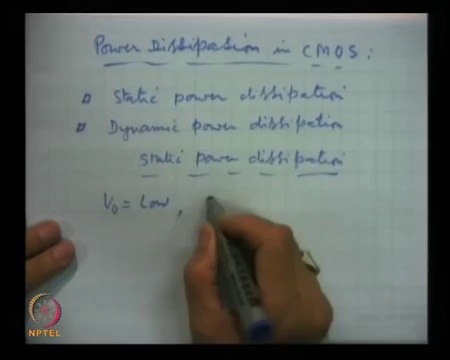 Power Dissipation in CMOS:
Static power dissipation
Dynamic power dissipation
static power dissipation
V₀ = Low,
NPTEL